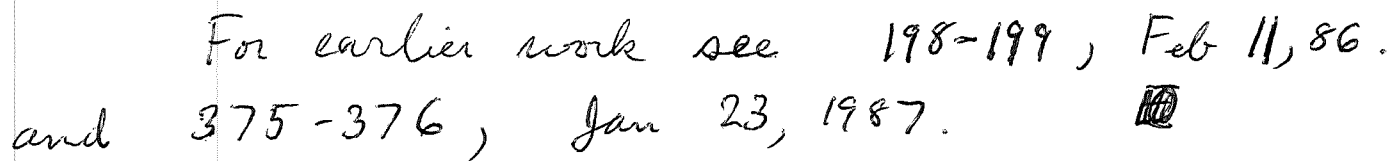 For earlier work see 198-199, Feb 11, 86.
and 375-376, Jan 23, 1987.